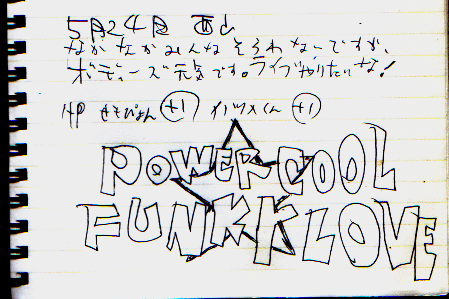 5月24日
なかなかみんなそろわないですが、
ボディーズ元気です。ライブやりたいな!
HP +1 +1
POWER COOL
FUNKK LOVE